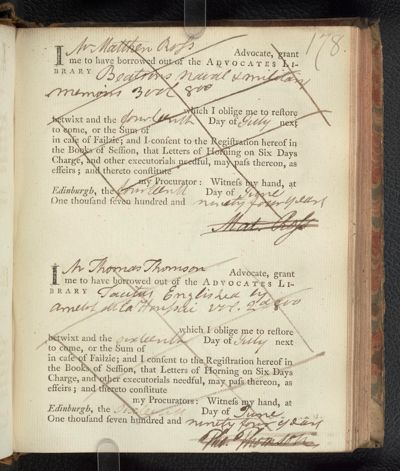 178.
I Mr Matthew Ross Advocate, grant
me to have borrowed out of the ADVOCATES LI-
BRARY Beatsons naval & military
memoirs 3 vol 8vo
which I oblige me to restore
betwixt and the fourteenth Day of July next
to come, or the Sum of
in case of Failzie; and I consent to the Registration hereof in
the Books of Session, that Letters of Horning on Six Days
Charge, and other executorials needful, may pass thereon, as
effeirs; and thereto constitute
my Procurator: Witness my hand, at
Edinburgh, the fourteenth Day of June
One thousand seven hundred and ninety four years
Mat. Ross
I Mr Thomas Thomson Advocate, grant
me to have borrowed out of the ADVOCATES LI-
BRARY Tacitus Englished by
Amelot de la Houssaie 8vo
which I oblige me to restore
betwixt and the sixteenth Day of July next
to come, or the Sum of
in case of Failzie; and I consent to the Registration hereof in
the Books of Session, that Letters of Horning on Six Days
Charge, and other executorials needful, may pass thereon, as
effeirs; and thereto constitute
my Procurator: Witness my hand, at
Edinburgh, the sixteenth Day of June
One thousand seven hundred and ninety four years
Tho. Thomson